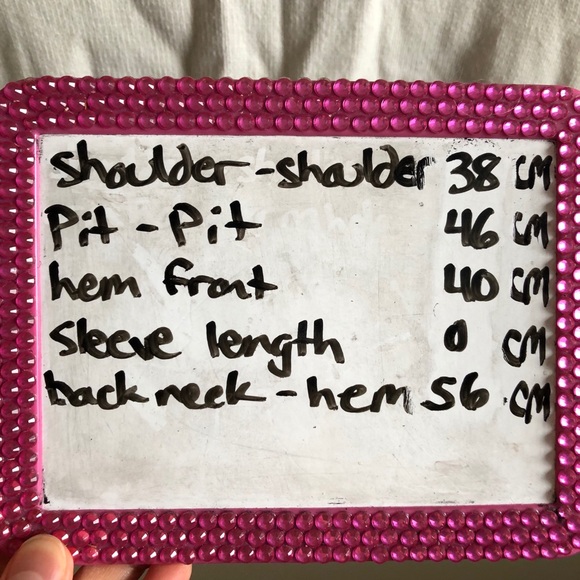 shoulder - shoulder 38 cm
Pit - Pit 46 cm
hem front 40 cm
sleeve length 0 cm
back neck - hem 56 cm